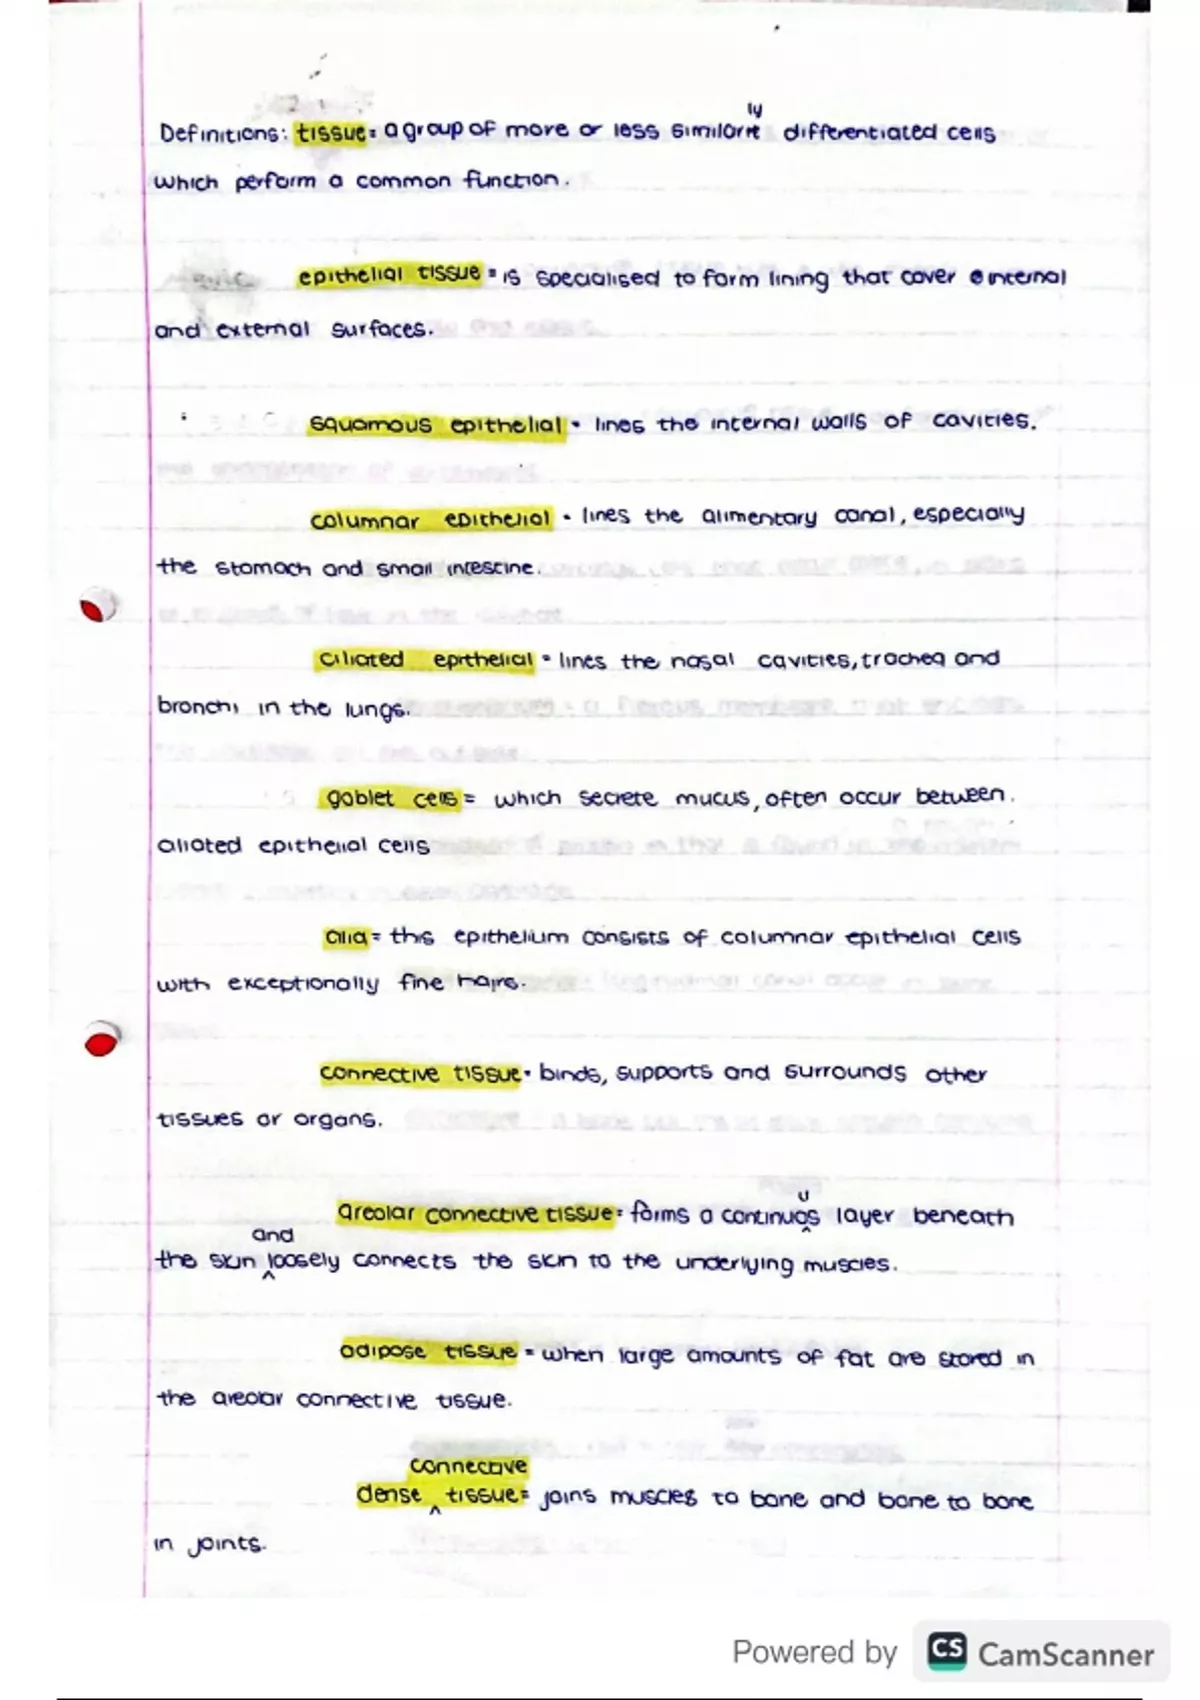 Definitions: tissue = a group of more or less similarly differentiated cells
which perform a common function.
epithelial tissue = is specialised to form lining that cover internal
and external surfaces.
squamous epithelial = lines the internal walls of cavities.
columnar epithelial = lines the alimentary canal, especially
the stomach and small intestine.
ciliated epithelial = lines the nasal cavities, trachea and
bronchi in the lungs.
goblet cells = which secrete mucus, often occur between
ciliated epithelial cells
cilia = this epithelium consists of columnar epithelial cells
with exceptionally fine hairs.
connective tissue = binds, supports and surrounds other
tissues or organs.
areolar connective tissue = forms a continuous layer beneath
the skin and loosely connects the skin to the underlying muscles.
adipose tissue = when large amounts of fat are stored in
the areolar connective tissue.
dense connective tissue = joins muscles to bone and bone to bone
in joints.
Powered by CS CamScanner